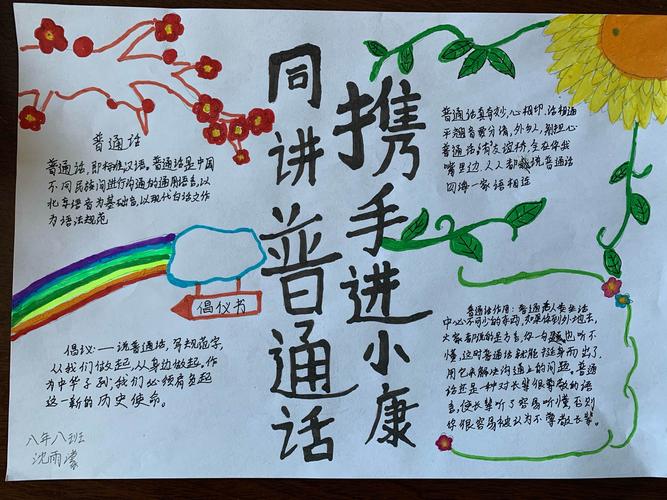 同讲普通话
携手进小康
普通话
普通话，即标准汉语。普通话是中国
不同民族间进行沟通的通用语言，以
北京语音为基础音，以现代白话文作
为语法规范
倡仪书
倡仪：一说普通话，写规范字，
从我们做起，从身边做起。作
为中华子孙，我们必须肩负起
这一新的历史使命。
八年八班
普通话真奇妙，心相印，话相通
平翘音要分清，外乡人，别担心
普通话，有友谊桥，全在你我
嘴里边，人人都说普通话
四海一家语相连
普通话作用：普通话是人类生活
中必不可少的东西，如果你到外地去，
大家都用的是方言，你一句也听不
懂，这时普通话就能挺身而出了，
用它来解决沟通上的问题。普通
话还是一种对长辈很尊敬的语
言，使长辈听了容易听懂，否则
你很容易被认为不尊敬长辈。